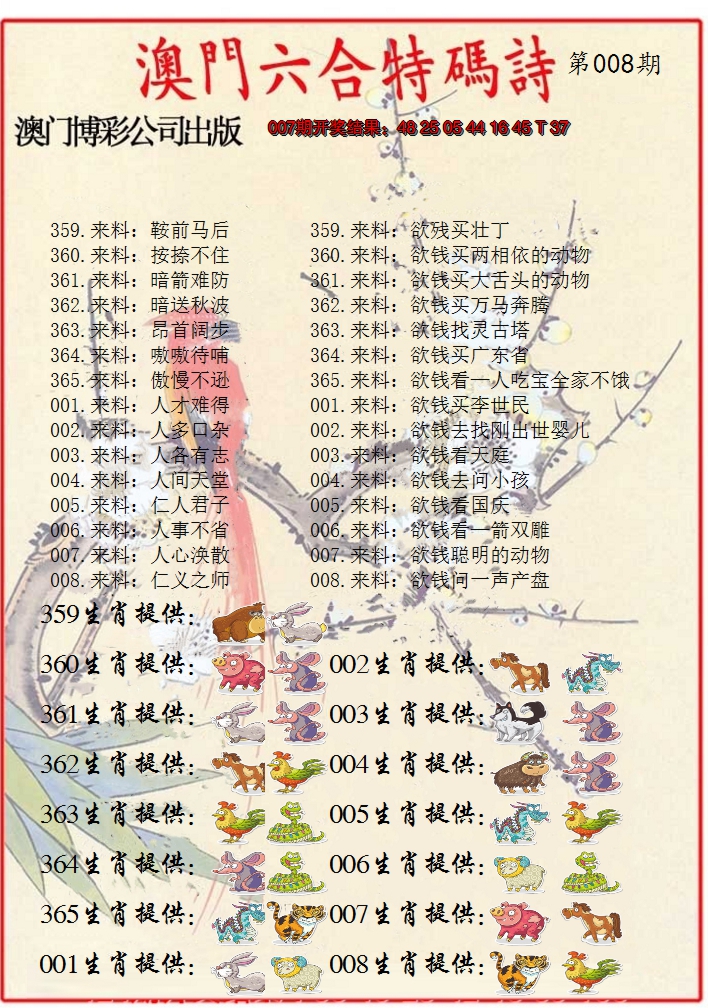 澳門六合特碼詩 第008期
澳门博彩公司出版 007期开奖结果：48 25 05 44 16 45 T 37
359.来料：鞍前马后 359.来料：欲残买壮丁
360.来料：按捺不住 360.来料：欲钱买两相依的动物
361.来料：暗箭难防 361.来料：欲钱买大舌头的动物
362.来料：暗送秋波 362.来料：欲钱买万马奔腾
363.来料：昂首阔步 363.来料：欲钱找灵古塔
364.来料：嗷嗷待哺 364.来料：欲钱买广东省
365.来料：傲慢不逊 365.来料：欲钱看一人吃宝全家不饿
001.来料：人才难得 001.来料：欲钱买李世民
002.来料：人多口杂 002.来料：欲钱去找刚出世婴儿
003.来料：人各有志 003.来料：欲钱看天庭
004.来料：人间天堂 004.来料：欲钱去问小孩
005.来料：仁人君子 005.来料：欲钱看国庆
006.来料：人事不省 006.来料：欲钱看一箭双雕
007.来料：人心涣散 007.来料：欲钱聪明的动物
008.来料：仁义之师 008.来料：欲钱问一声产盘
359生肖提供：
360生肖提供： 002生肖提供：
361生肖提供： 003生肖提供：
362生肖提供： 004生肖提供：
363生肖提供： 005生肖提供：
364生肖提供： 006生肖提供：
365生肖提供： 007生肖提供：
001生肖提供： 008生肖提供：